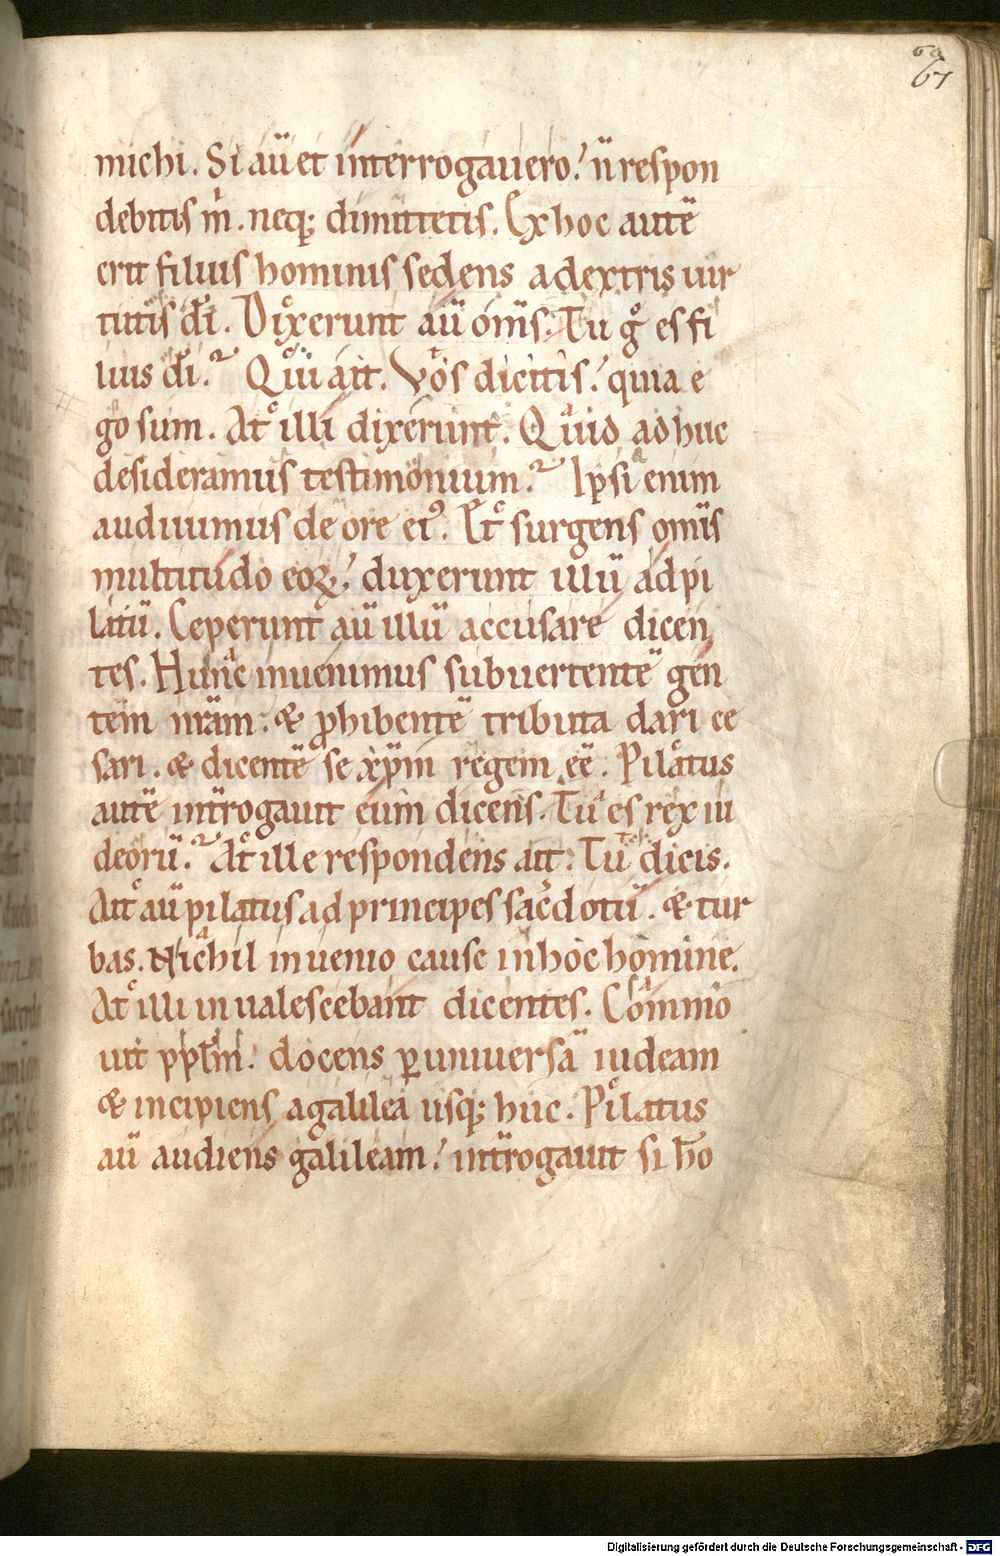 60
67
michi. Si aū et interrogauero! n̄ respon
debitis m̄. neq; dimittetis. Ex hoc autē
erit filius hominis sedens adextris uir
tutis dī. Dixerunt aū om̄s. Tu gͦ es fi
lius dī? Qui ait. Vos dicitis! quia e
go sum. At illi dixerunt. Quid adhuc
desideramus testimonium? Ipsi enim
audiuimus de ore ei⁹. Et surgens om̄is
multitudo eoꝝ! duxerunt illū ad pi
latū. Ceperunt aū illū accusare dicen
tes. Hunc inuenimus subuertentē gen
tem nr̄am: & ꝓhibentē tributa dari ce
sari. & dicentē se xp̄m regem eē. Pilatus
autē int̄rogauit eum dicens. Tu es rex iu
deorū? At ille respondens ait: Tu dicis.
Ait aū pilatus ad principes sacerdotū. & tur
bas. Nichil inuenio cause in hoc homine.
At illi inualescebant dicentes. Commo
uit pp̄l̄m! docens ꝑ uniuersā iudeam
& incipiens a galilea usq; huc. Pilatus
aū audiens galileam! int̄rogauit si ho
Digitalisierung gefördert durch die Deutsche Forschungsgemeinschaft - DFG